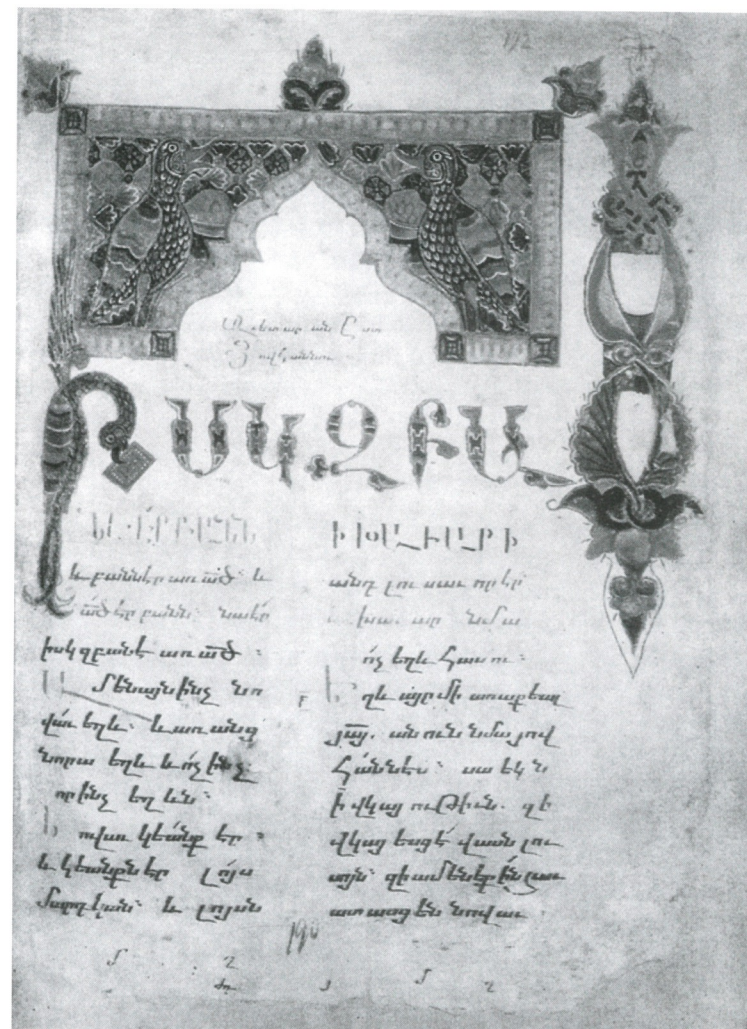 192
Աւետարան Ըստ
Յովհաննու
Ի ՍԿԶԲԱ
ՆԷ ԷՐ ԲԱՆՆ
և բանն էր առ ած՝ և
ած էր բանն՝ նա էր
իսկզբանէ առ ած ։
Ամենայն ինչ նո
վաւ եղև՝ և առանց
նորա եղև և ոչ ինչ՝
որ ինչ եղևն՝
Նովաւ կեանք էր ։
և կեանքն էր լոյս
մարդկան՝ և լոյսն
Ի ԽԱՒԱՐԻ
անդ լուսաւոր էր
խաւար նմա
ոչ եղև հասու ։
Եղև այր մի առաքեալ
յայ. անուն նմա յով
հաննէս՝ սա եկն
ի վկայութիւն. զի
վկայեսցէ վասն լու
սոյն՝ զի ամենեքին
հաւատասցեն նովաւ
190